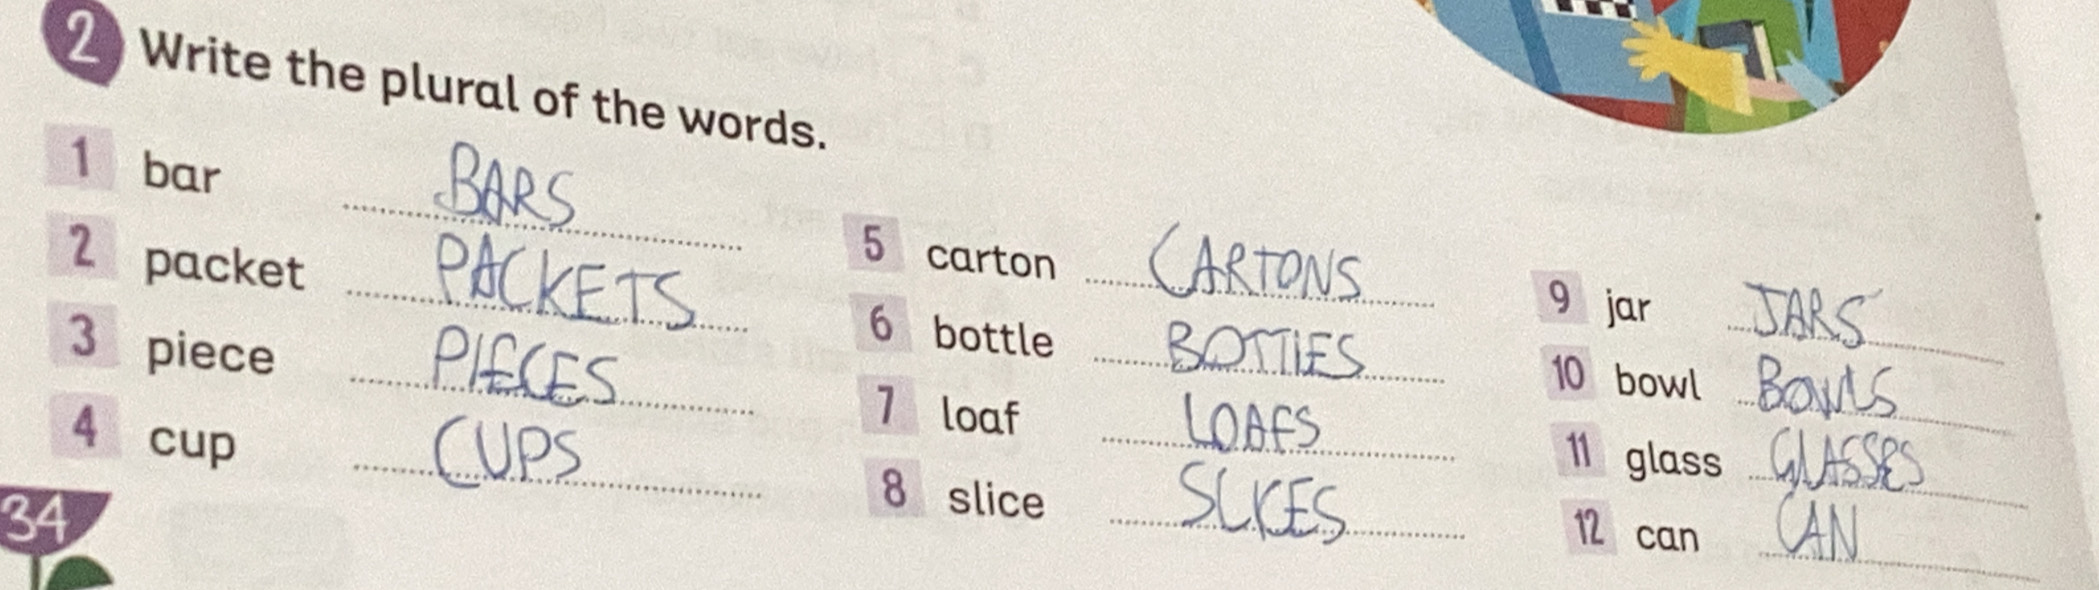 2 Write the plural of the words.
1 bar BARS
2 packet PACKETS
3 piece PIECES
4 cup CUPS
5 carton CARTONS
6 bottle BOTTLES
7 loaf LOAFS
8 slice SLICES
9 jar JARS
10 bowl BOWLS
11 glass GLASSES
12 can CAN
34